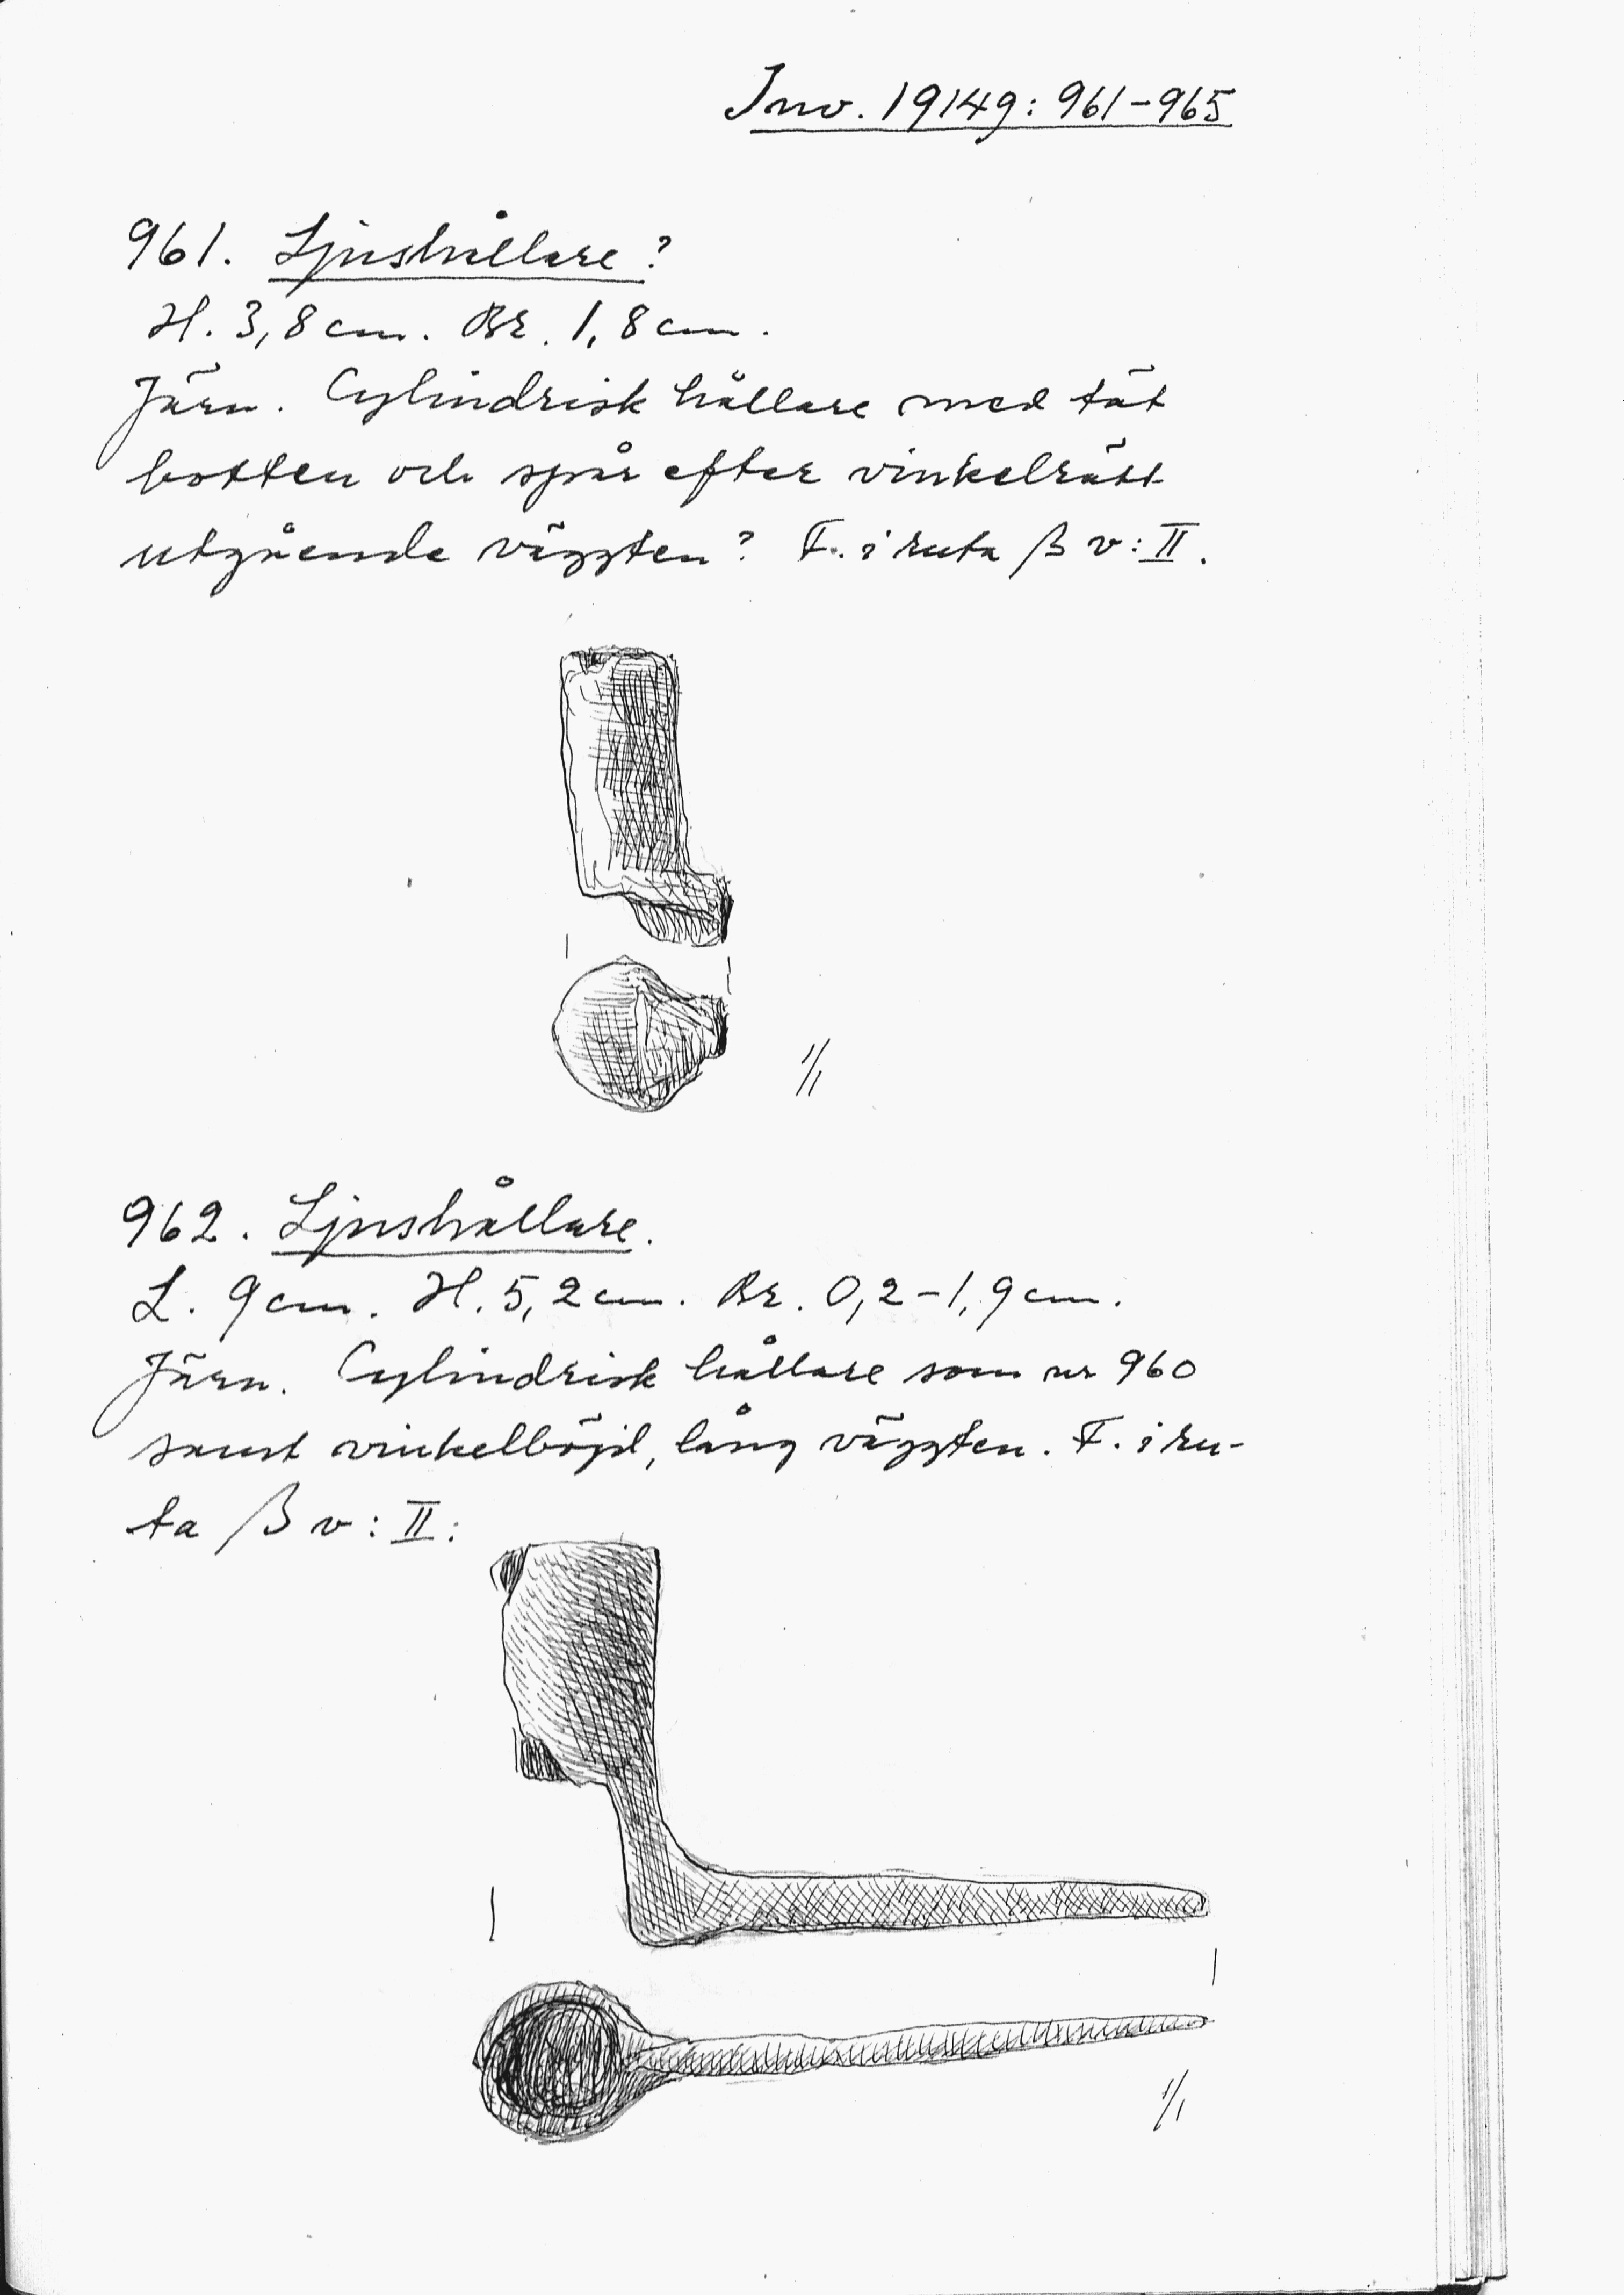 Inv. 19149: 961-965
961. Ljushållare?
H. 3,8 cm. Br. 1,8 cm.
Järn. Cylindrisk hållare med tät
botten och spår efter vinkelrätt
utgående väggten? F. i ruta β v: II.
1/1
962. Ljushållare.
L. 9 cm. H. 5,2 cm. Br. 0,2-1,9 cm.
Järn. Cylindrisk hållare som nr 960
samt vinkelböjd, lång väggten. F. i ru-
ta β v: II.
1/1